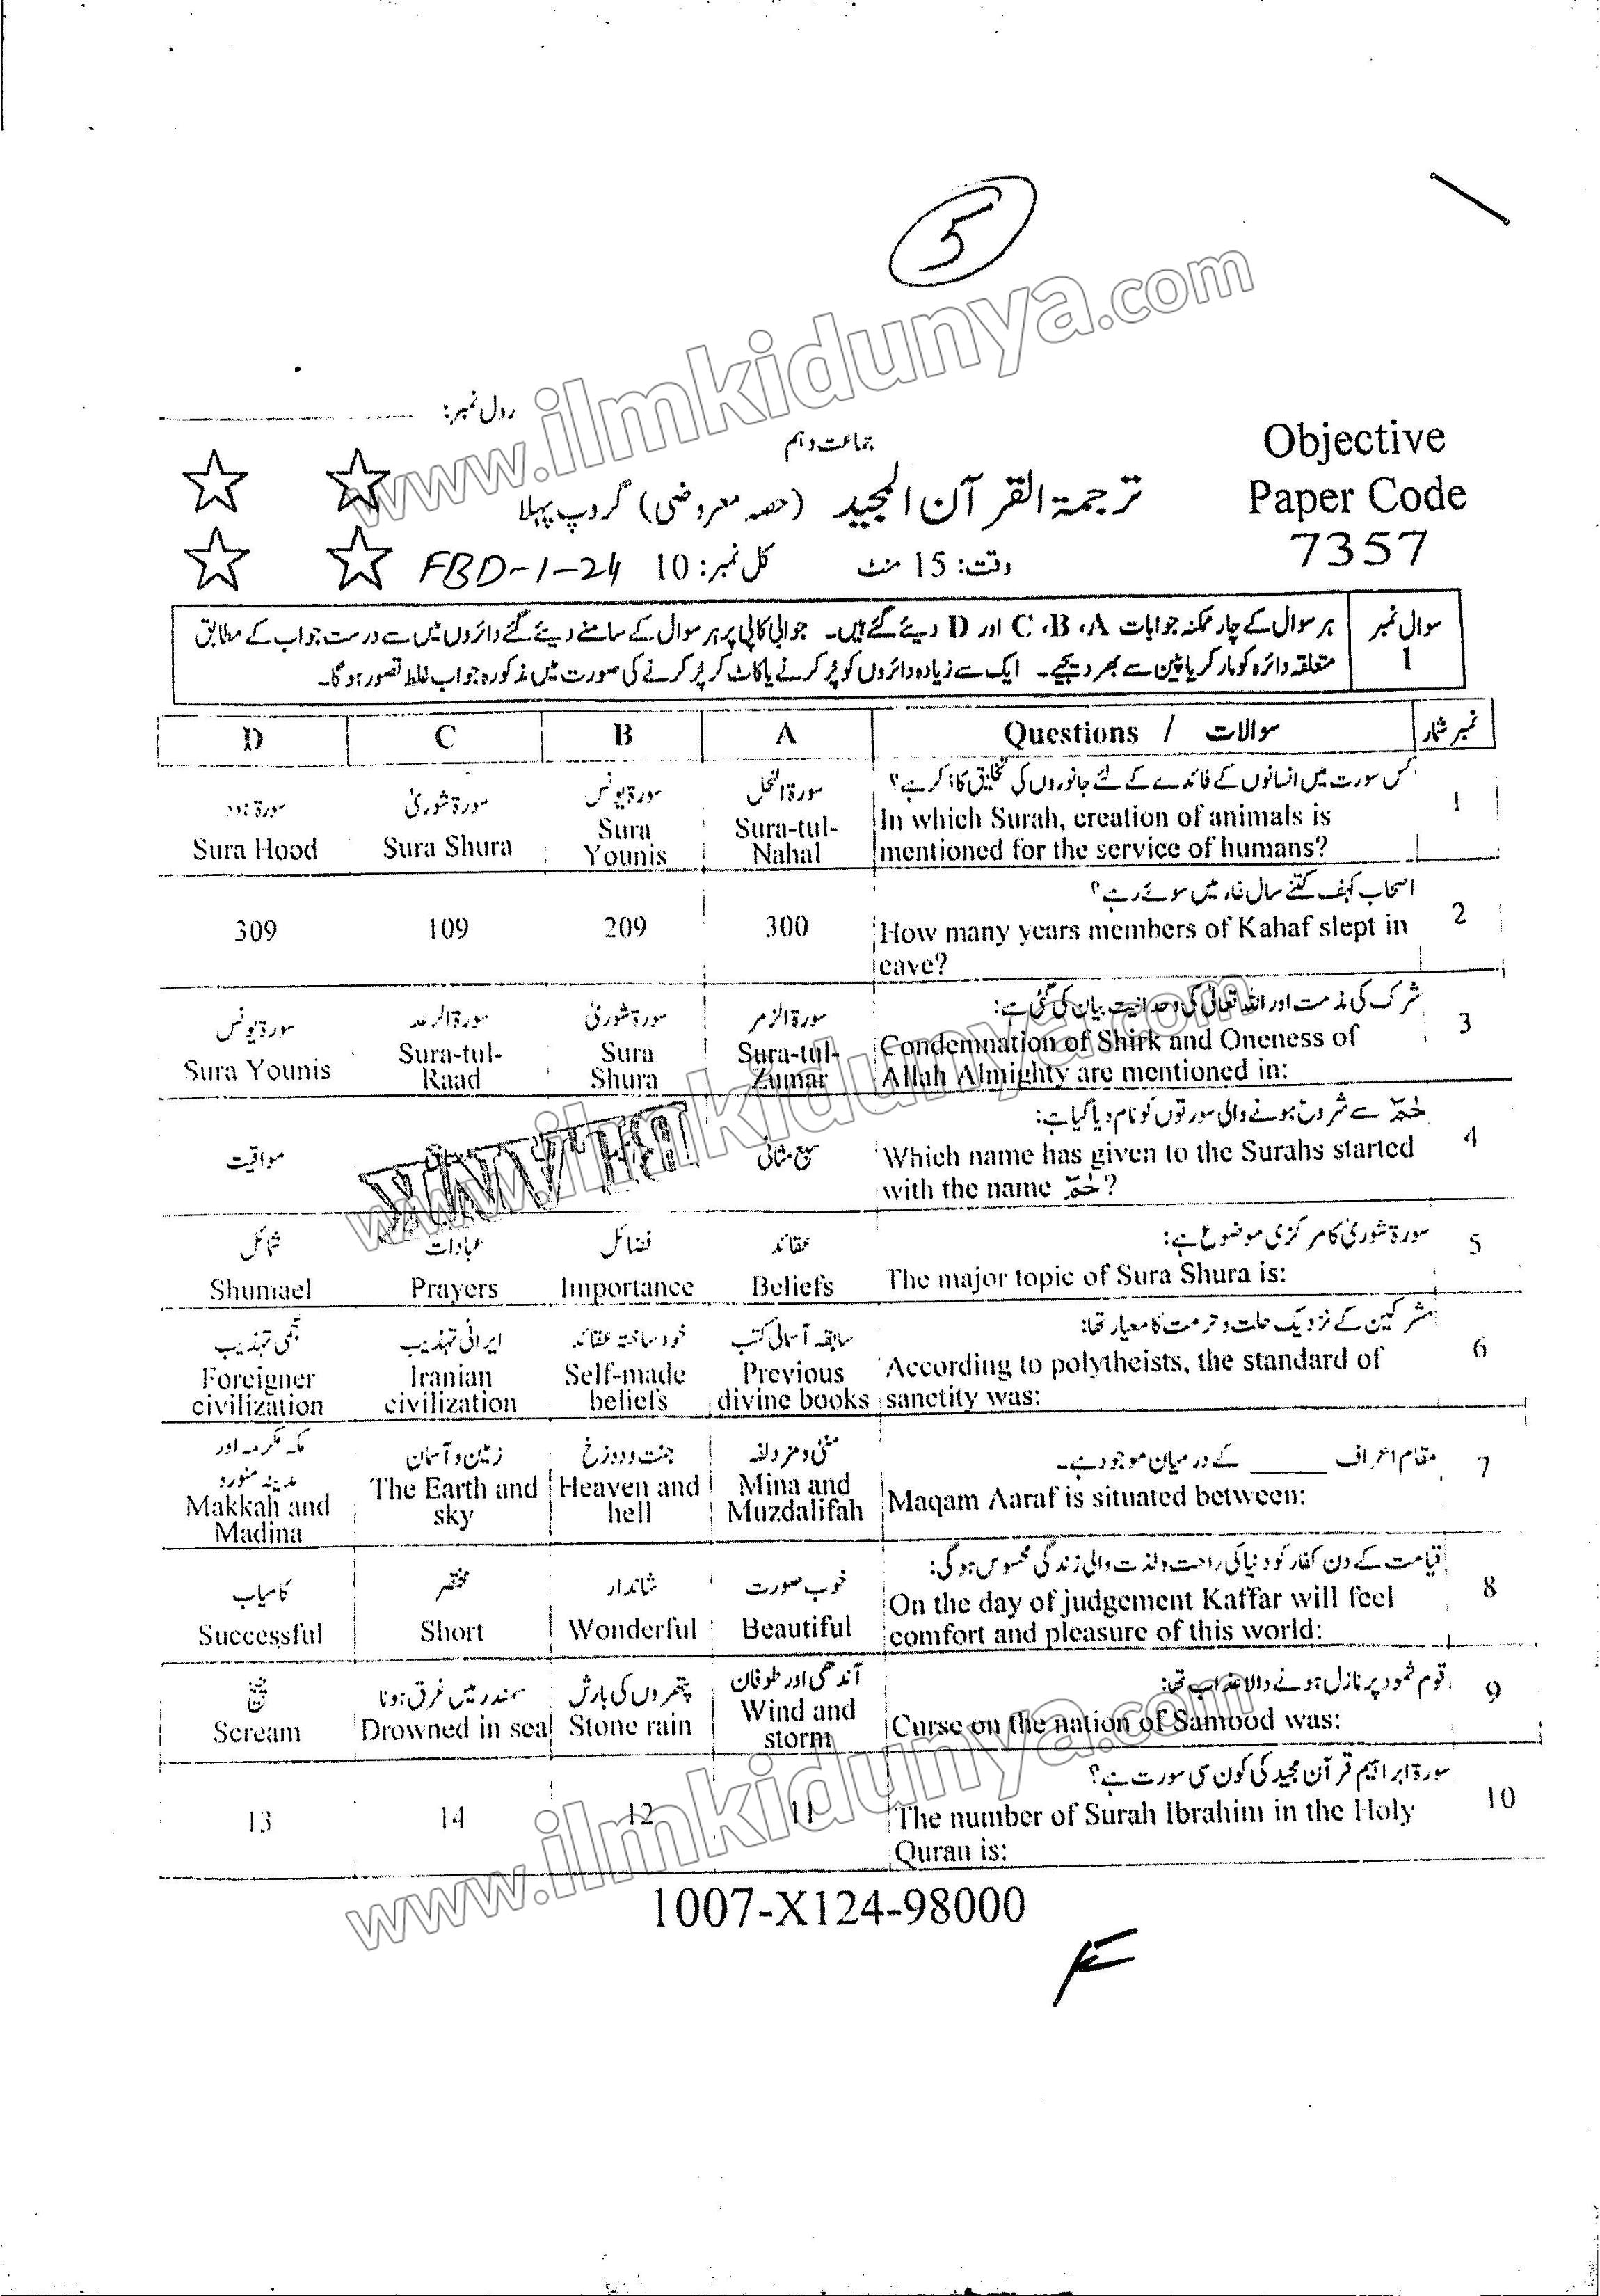 5
www.ilmkidunya.com
رول نمبر:
جماعت دہم
Objective
Paper Code
7357
ترجمۃ القرآن المجید (حصہ معروضی) گروپ پہلا
وقت: 15 منٹ کل نمبر: 10 FBD-1-24
سوال نمبر 1
ہر سوال کے چار ممکنہ جوابات A، B، C اور D دیئے گئے ہیں۔ جوابی کاپی پر ہر سوال کے سامنے دیئے گئے دائروں میں سے درست جواب کے مطابق
متعلقہ دائرہ کو مارکر یا پین سے بھر دیجیے۔ ایک سے زیادہ دائروں کو پُر کرنے یا کاٹ کر پُر کرنے کی صورت میں مذکورہ جواب غلط تصور ہو گا۔
نمبر شمار سوالات / Questions A B C D
1
کس سورت میں انسانوں کے فائدے کے لئے جانوروں کی تخلیق کا ذکر ہے؟
In which Surah, creation of animals is
mentioned for the service of humans?
سورۃ النحل
Sura-tul-
Nahal
سورۃ یونس
Sura
Younis
سورۃ شوریٰ
Sura Shura
سورۃ ہود
Sura Hood
2
اصحاب کہف کتنے سال غار میں سوئے رہے؟
How many years members of Kahaf slept in
cave?
300
209
109
309
3
شرک کی مذمت اور اللہ تعالیٰ کی وحدانیت بیان کی گئی ہے:
Condemnation of Shirk and Oneness of
Allah Almighty are mentioned in:
سورۃ الزمر
Sura-tul-
Zumar
سورۃ شوریٰ
Sura
Shura
سورۃ الرعد
Sura-tul-
Raad
سورۃ یونس
Sura Younis
4
حٰمٓ سے شروع ہونے والی سورتوں کو نام دیا گیا ہے:
Which name has given to the Surahs started
with the name حٰمٓ?
سبع مثانی
مواقیت
www.ilmkidunya.com
5
سورۃ شوریٰ کا مرکزی موضوع ہے:
The major topic of Sura Shura is:
عقائد
Beliefs
فضائل
Importance
عبادات
Prayers
شمائل
Shumael
6
مشرکین کے نزدیک حلت و حرمت کا معیار تھا:
According to polytheists, the standard of
sanctity was:
سابقہ آسمانی کتب
Previous
divine books
خود ساختہ عقائد
Self-made
beliefs
ایرانی تہذیب
Iranian
civilization
عجمی تہذیب
Foreigner
civilization
7
مقام اعراف _____ کے درمیان موجود ہے۔
Maqam Aaraf is situated between:
منیٰ و مزدلفہ
Mina and
Muzdalifah
جنت و دوزخ
Heaven and
hell
زمین و آسمان
The Earth and
sky
مکہ مکرمہ اور
مدینہ منورہ
Makkah and
Madina
8
قیامت کے دن کفار کو دنیا کی راحت و لذت والی زندگی محسوس ہو گی:
On the day of judgement Kaffar will feel
comfort and pleasure of this world:
خوب صورت
Beautiful
شاندار
Wonderful
مختصر
Short
کامیاب
Successful
9
قوم ثمود پر نازل ہونے والا عذاب تھا:
Curse on the nation of Samood was:
آندھی اور طوفان
Wind and
storm
پتھروں کی بارش
Stone rain
سمندر میں غرق ہونا
Drowned in sea
چیخ
Scream
10
سورۃ ابراہیم قرآن مجید کی کون سی سورت ہے؟
The number of Surah Ibrahim in the Holy
Quran is:
11
12
14
13
www.ilmkidunya.com
1007-X124-98000